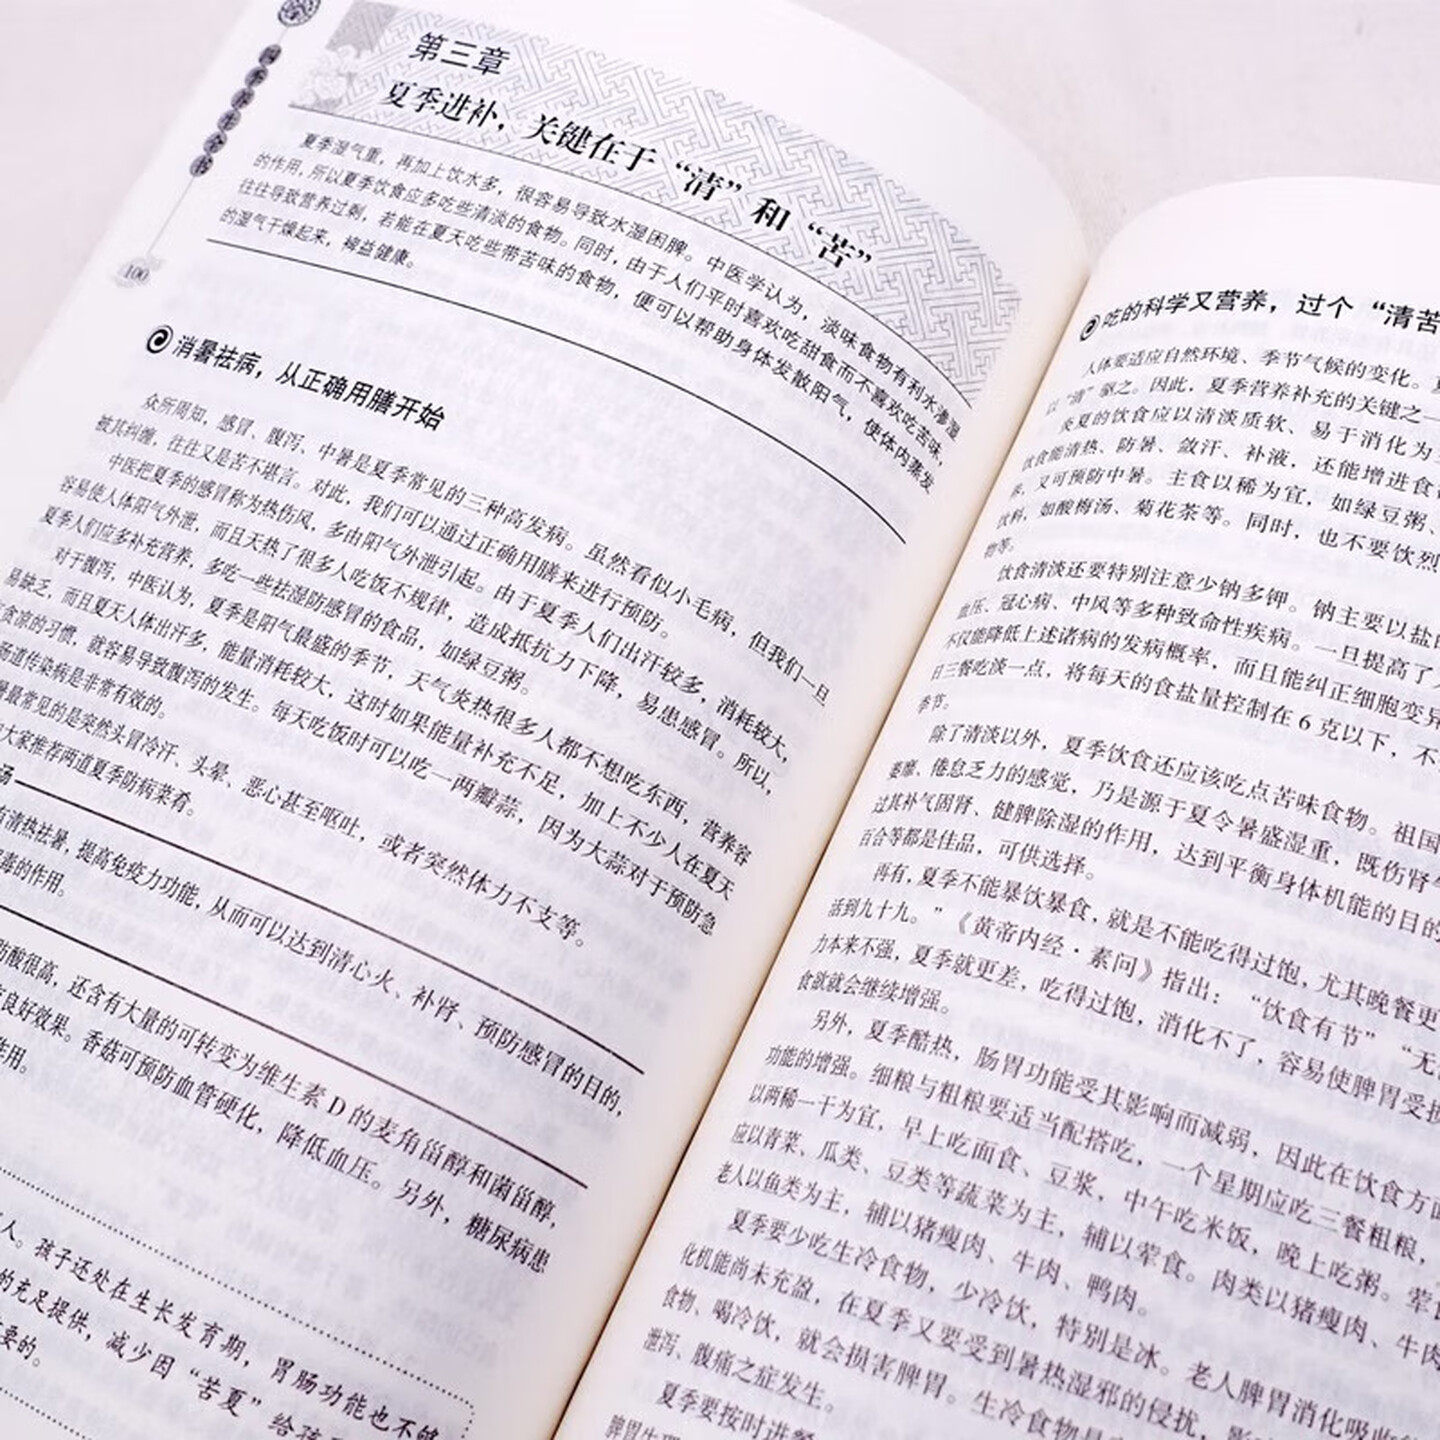 四季养生全书
100
第三章
夏季进补，关键在于“清”和“苦”
夏季湿气重，再加上饮水多，很容易导致水湿困脾。中医学认为，淡味食物有利水渗湿
的作用，所以夏季饮食应多吃些清淡的食物。同时，由于人们平时喜欢吃甜食而不喜欢吃苦味，
往往导致营养过剩，若能在夏天吃些带苦味的食物，便可以帮助身体发散阳气，使体内蒸发
的湿气干燥起来，裨益健康。
消暑祛病，从正确用膳开始
众所周知，感冒、腹泻、中暑是夏季常见的三种高发病。虽然看似小毛病，但我们一旦
被其纠缠，往往又是苦不堪言。对此，我们可以通过正确用膳来进行预防。
中医把夏季的感冒称为热伤风，多由阳气外泄引起。由于夏季人们出汗较多，消耗较大，
容易使人体阳气外泄，而且天热了很多人吃饭不规律，造成抵抗力下降，易患感冒。所以，
夏季人们应多补充营养，多吃一些祛湿防感冒的食品，如绿豆粥。
对于腹泻，中医认为，夏季是阳气最盛的季节，天气炎热很多人都不想吃东西，营养容
易缺乏，而且夏天人体出汗多，能量消耗较大，这时如果能量补充不足，加上不少人在夏天
贪凉的习惯，就容易导致腹泻的发生。每天吃饭时可以吃一两瓣蒜，因为大蒜对于预防急
肠道传染病是非常有效的。
最常见的是突然头冒冷汗、头晕、恶心甚至呕吐，或者突然体力不支等。
大家推荐两道夏季防病菜肴。
汤
有清热祛暑，提高免疫力功能，从而可以达到清心火、补肾、预防感冒的目的，
毒的作用。
肪酸很高，还含有大量的可转变为维生素 D 的麦角甾醇和菌甾醇，
良好效果。香菇可预防血管硬化，降低血压。另外，糖尿病患
作用。
人。孩子还处在生长发育期，胃肠功能也不够
的充足提供，减少因“苦夏”给孩
要的。
吃的科学又营养，过个“清苦
人体要适应自然环境、季节气候的变化。
以“清”驱之。因此，夏季营养补充的关键之一
炎夏的饮食应以清淡质软、易于消化为
饮食能清热、防暑、敛汗、补液，还能增进食
养，又可预防中暑。主食以稀为宜，如绿豆粥、
饮料，如酸梅汤、菊花茶等。同时，也不要饮烈
物等。
饮食清淡还要特别注意少钠多钾。钠主要以盐的
血压、冠心病、中风等多种致命性疾病。一旦提高了
不仅能降低上述诸病的发病概率，而且能纠正细胞变异
日三餐吃淡一点，将每天的食盐量控制在 6 克以下，不
季节。
除了清淡以外，夏季饮食还应该吃点苦味食物。祖国
萎靡、倦怠乏力的感觉，乃是源于夏令暑盛湿重，既伤肾气
过其补气固肾、健脾除湿的作用，达到平衡身体机能的目的
百合等都是佳品，可供选择。
再有，夏季不能暴饮暴食，就是不能吃得过饱，尤其晚餐更
活到九十九。”《黄帝内经·素问》指出：“饮食有节”“无
力本来不强，夏季就更差，吃得过饱，消化不了，容易使脾胃受损
食欲就会继续增强。
另外，夏季酷热，肠胃功能受其影响而减弱，因此在饮食方面
功能的增强。细粮与粗粮要适当配搭吃，一个星期应吃三餐粗粮，
以两稀一干为宜，早上吃面食、豆浆，中午吃米饭，晚上吃粥。荤食
应以青菜、瓜类、豆类等蔬菜为主，辅以荤食。肉类以猪瘦肉、牛肉
老人以鱼类为主，辅以猪瘦肉、牛肉、鸭肉。
夏季要少吃生冷食物，少冷饮，特别是冰。老人脾胃消化吸收
化机能尚未充盈，在夏季又要受到暑热湿邪的侵扰，影
食物、喝冷饮，就会损害脾胃。生冷食物是
泄泻、腹痛之症发生。
夏季要按时进餐
脾胃生理